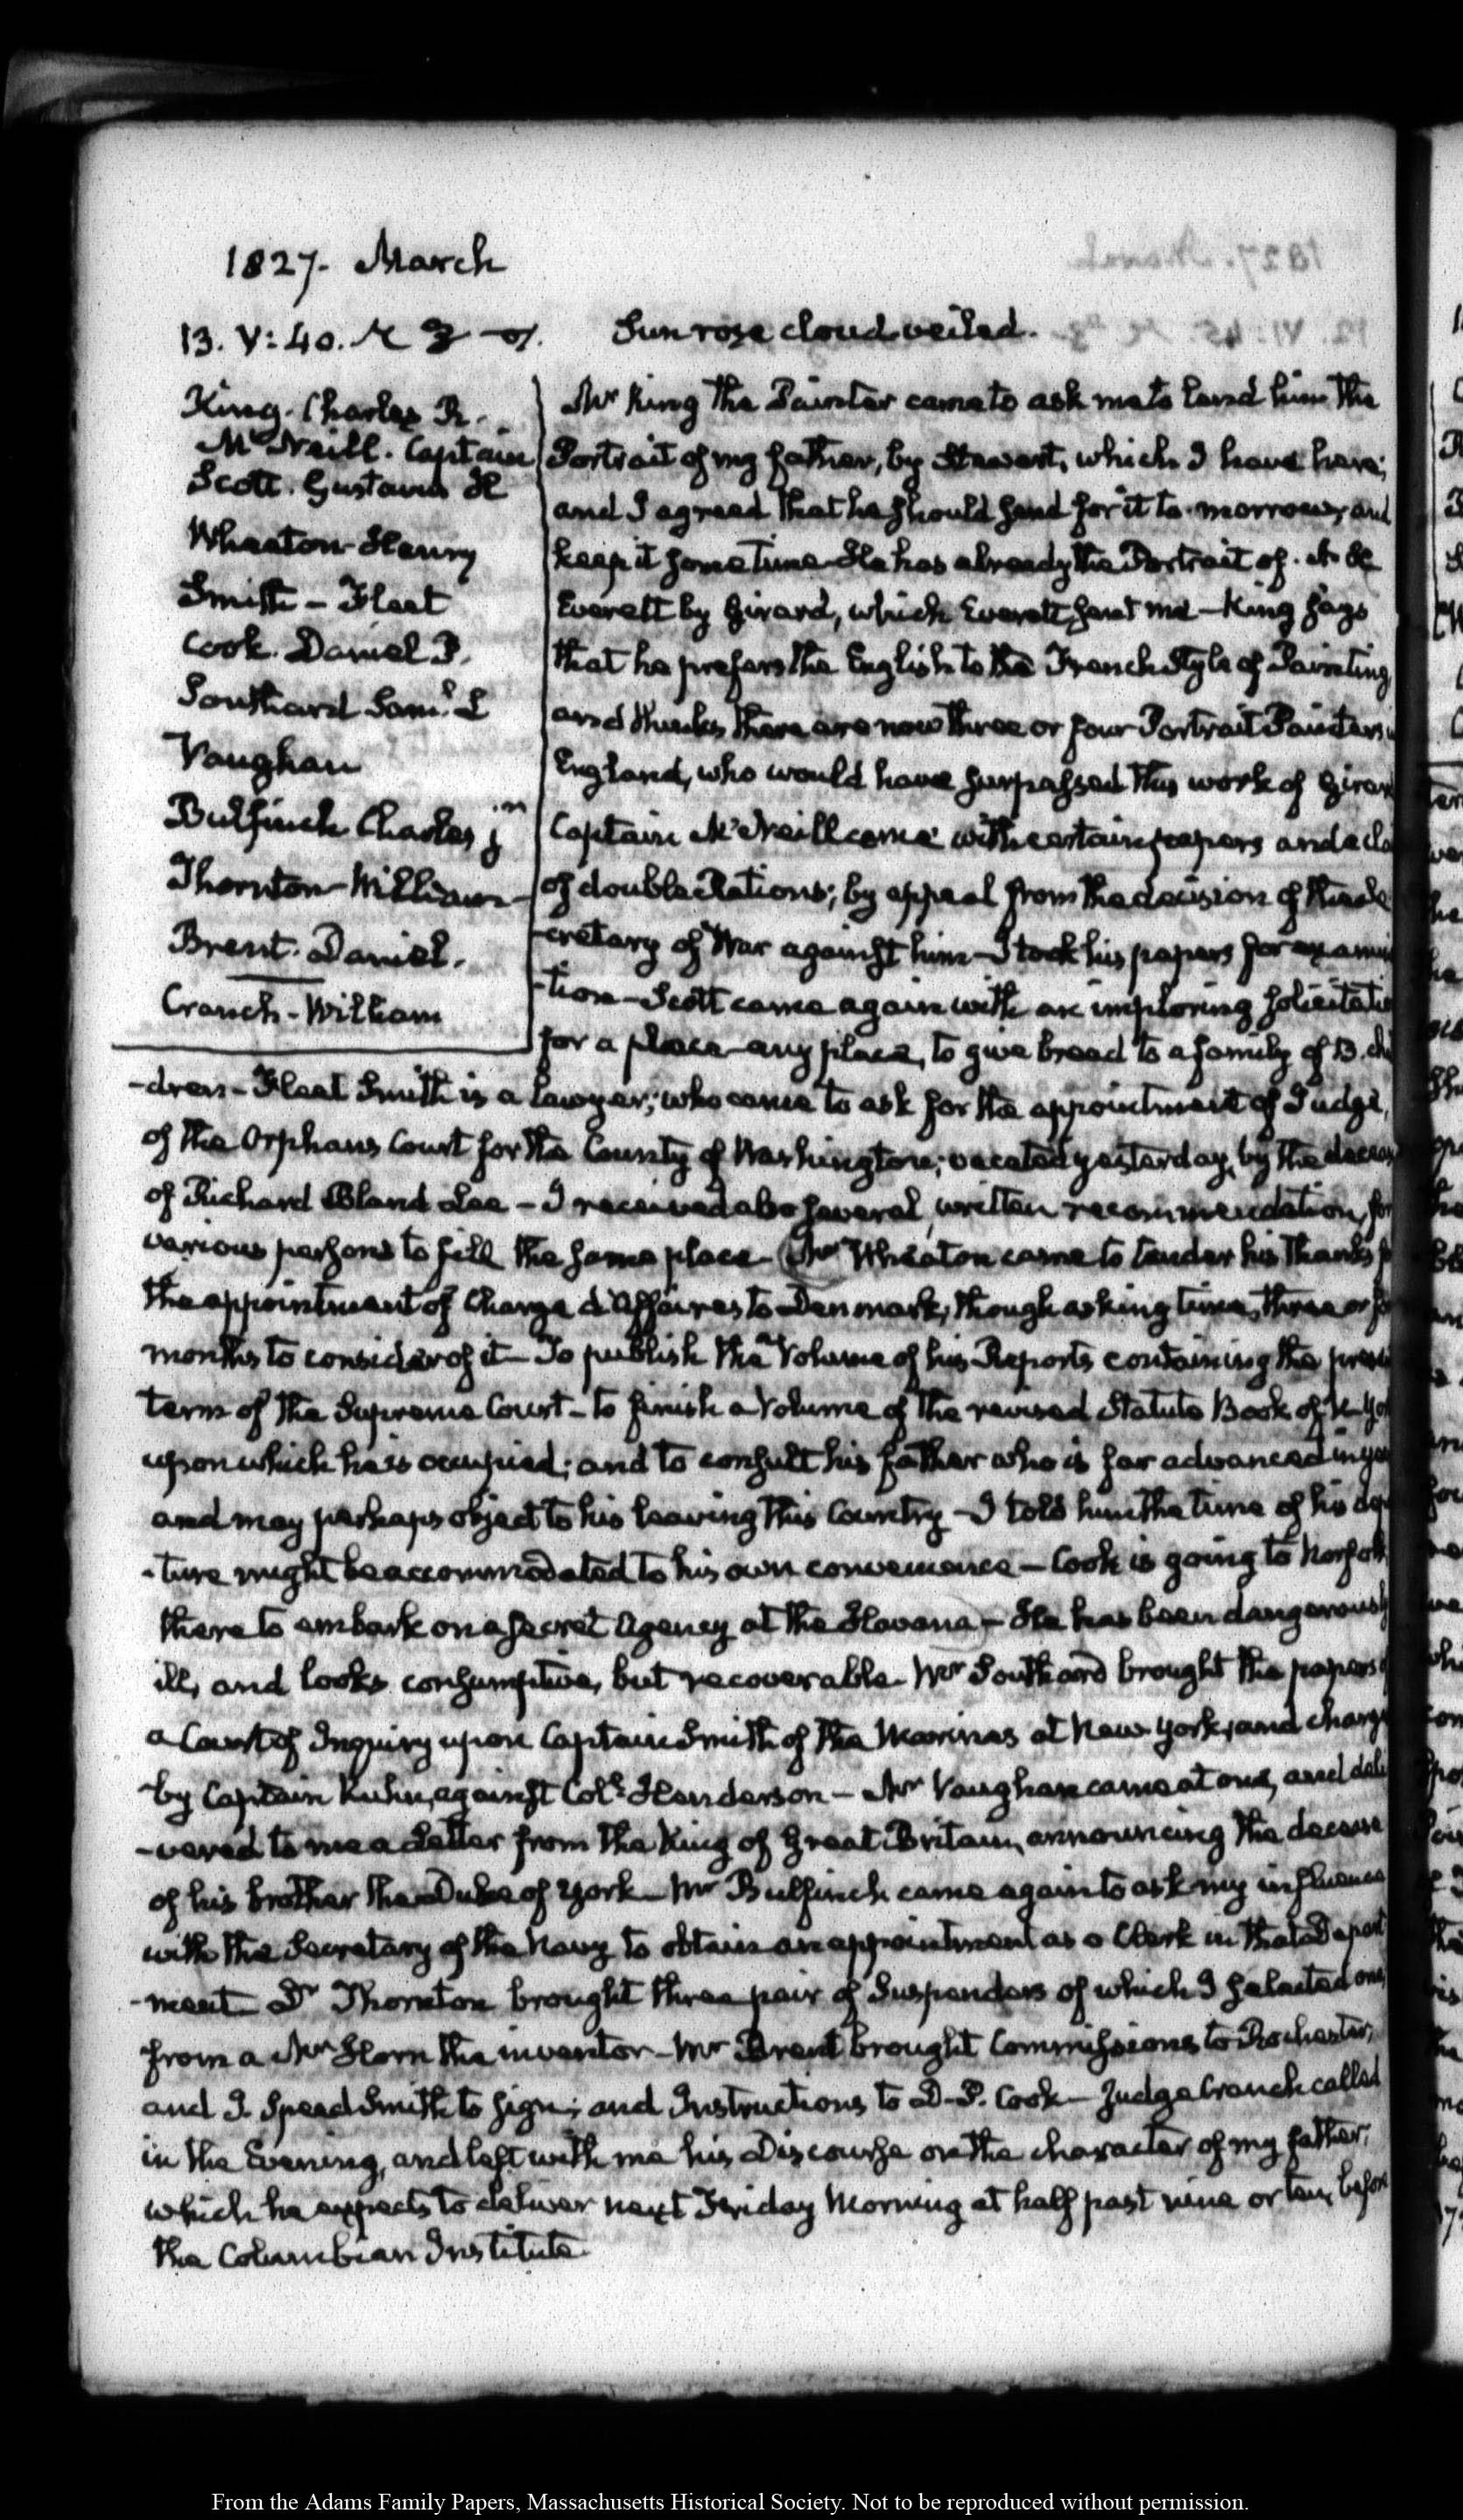 1827. March
13. V:40. Sun rose cloud veiled.
King. Charles B.
McNeill. Captain
Scott. Gustavus H
Wheaton Henry
Smith - Fleet
Cook. Daniel P.
Southard Saml. L
Vaughan
Bulfinch Charles jr.
Thornton-William-
Brent. Daniel.
Cranch-William
Mr King the Painter came to ask me to lend him the
Portrait of my father, by Stewart, which I have here;
and I agreed that he should send for it to-morrow, and
keep it some time—He has already the Portrait of A. H.
Everett by Girard, which Everett sent me—King says
that he prefers the English to the French Style of Painting
and thinks there are now three or four Portrait Painters in
England, who would have surpassed this work of Girar
Captain McNeill came with certain papers and a cla
of double Rations; by appeal from the decision of the Se
-cretary of War against him—I took his papers for exami
-tion—Scott came again with an imploring solicitatio
for a place—any place, to give bread to a family of 13. chi
-dren—Fleet Smith is a Lawyer, who came to ask for the appointment of Judge,
of the Orphans Court for the County of Washington; vacated yesterday, by the deceas
of Richard Bland Lee—I received also several, written recommendation, for
various persons to fill the same place—Mr Wheaton came to tender his thanks f
the appointment of Charge d'Affaires to Denmark, though asking time, three or fo
months to consider of it—To publish the Volume of his Reports containing the prese
term of the Supreme Court—to finish a Volume of the revised Statute Book of N-Yor
upon which he is occupied; and to consult his father who is far advanced in yea
and may perhaps object to his leaving this Country—I told him the time of his depa
-ture might be accommodated to his own convenience—Cook is going to Norfolk
there to embark on a secret Agency at the Havana—He has been dangerously
ill, and looks consumptive, but recoverable—Mr Southard brought the papers of
a Court of Inquiry upon Captain Smith of the Marines at New York, and charge
by Captain Kuhn, against Coll. Henderson—Mr Vaughan came at one, and deli
-vered to me a Letter from the King of Great Britain, announcing the decease
of his brother the Duke of York—Mr Bulfinch came again to ask my influence
with the Secretary of the Navy to obtain an appointment as a Clerk in that Depart
-ment—Dr Thornton brought three pair of Suspenders of which I selected one,
from a Mr Horn the inventor—Mr Brent brought Commissions to Rochester,
and J. Speed Smith to sign; and Instructions to D.P. Cook—Judge Cranch called
in the Evening, and left with me his Discourse on the character of my father,
which he expects to deliver next Friday Morning at half past nine or ten, before
the Columbian Institute.
From the Adams Family Papers, Massachusetts Historical Society. Not to be reproduced without permission.